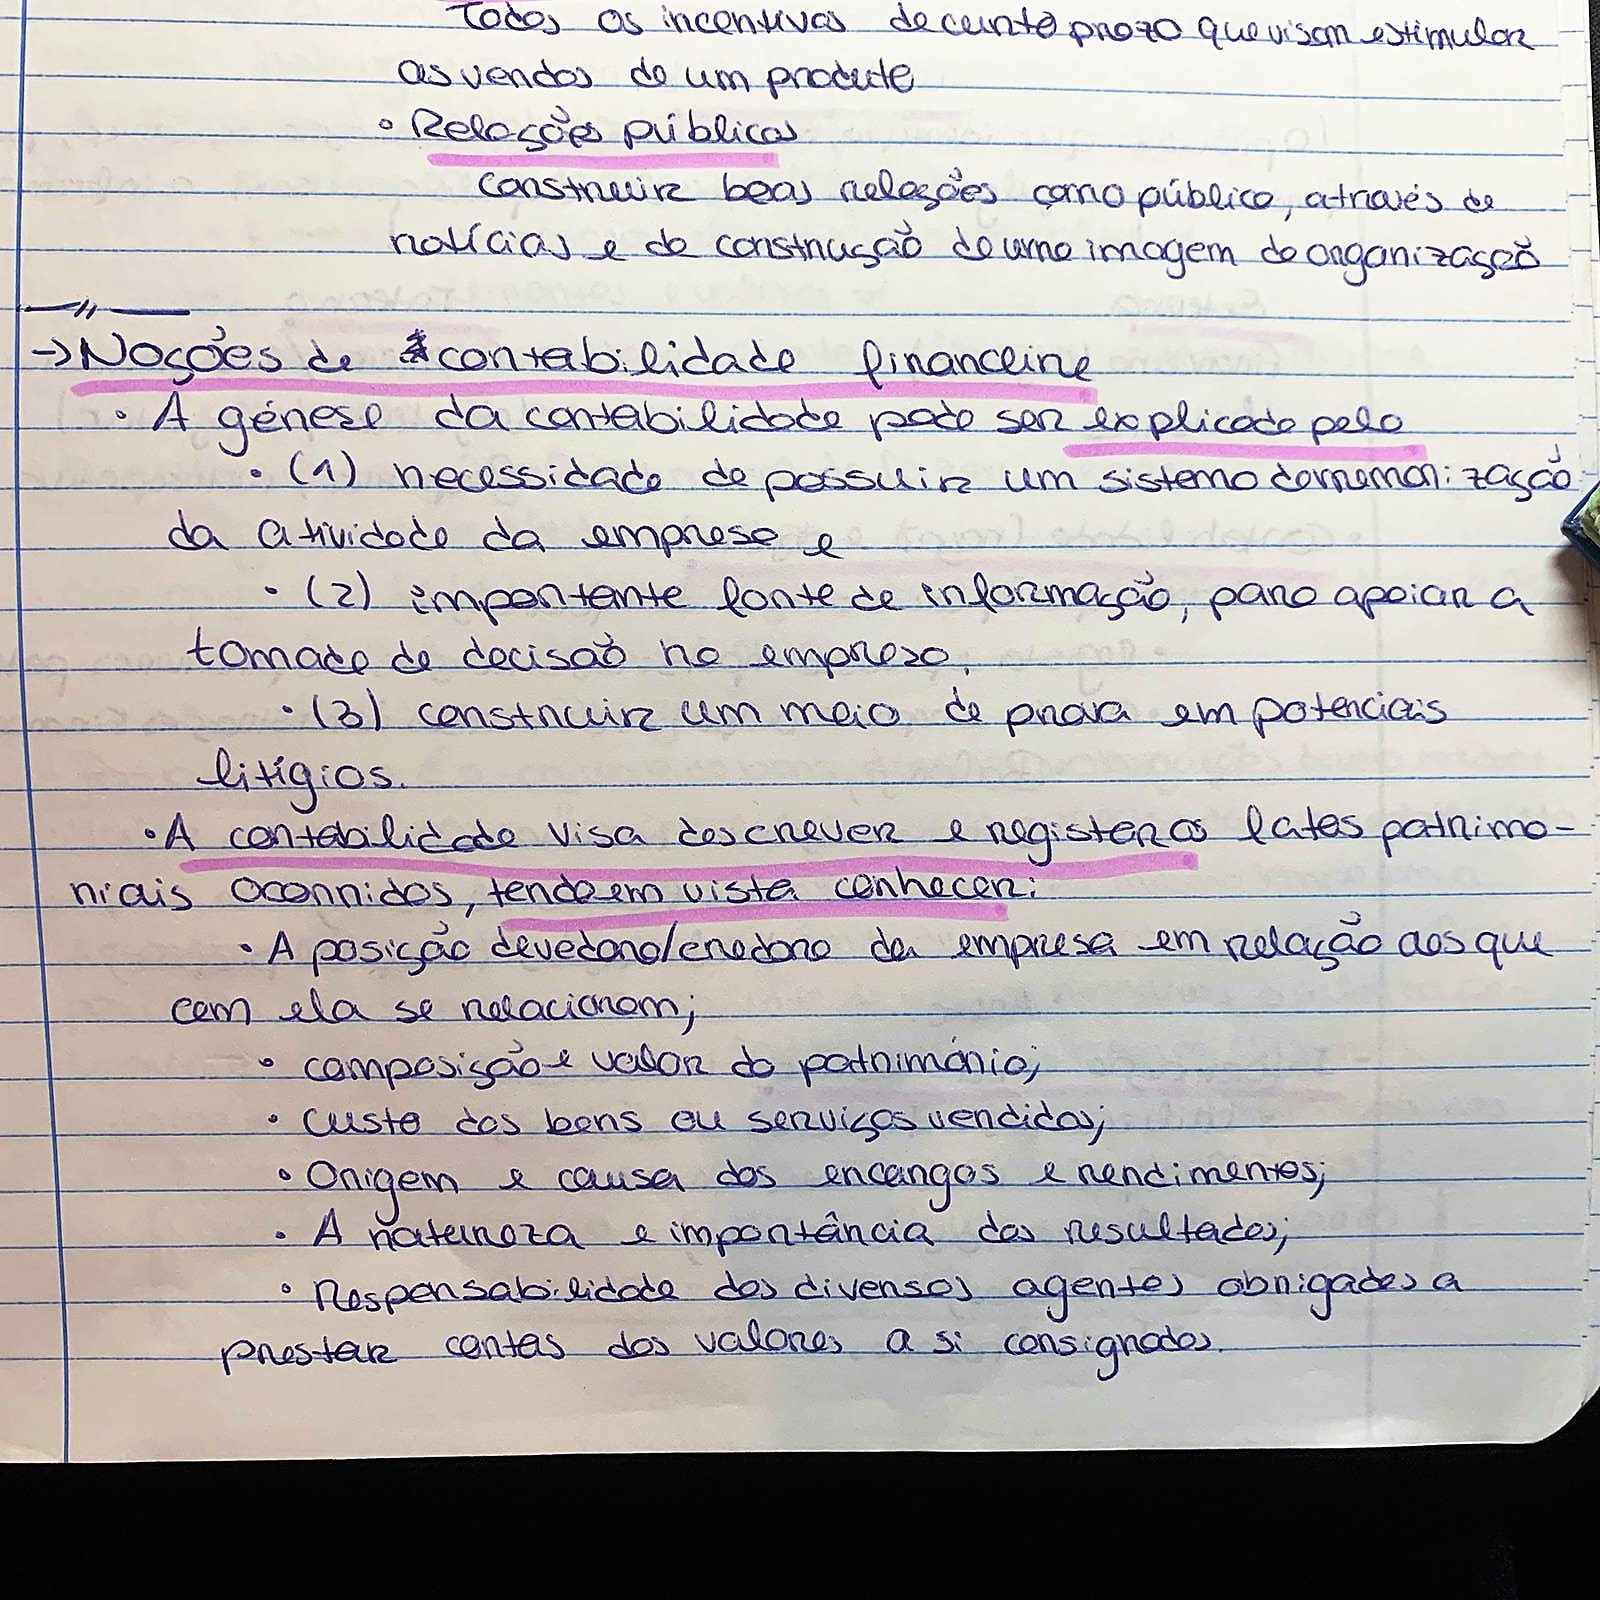 Todos os incentivos de curto prazo que visam estimular
as vendas de um produto
• Relações públicas
construir boas relações com o público, através de
notícias e da construção de uma imagem da organização
→ Noções de contabilidade financeira
• A génese da contabilidade pode ser explicada pela
• (1) necessidade de possuir um sistema de memorização
da atividade da empresa e
• (2) importante fonte de informação, para apoiar a
tomada de decisão na empresa.
• (3) construir um meio de prova em potenciais
litígios.
• A contabilidade visa descrever e registar os fatos patrimo-
niais ocorridos, tendo em vista conhecer:
• A posição devedora/credora da empresa em relação aos que
com ela se relacionam;
• composição e valor do património;
• Custo dos bens ou serviços vendidos;
• Origem e causa dos encargos e rendimentos;
• A natureza e importância dos resultados;
• Responsabilidade dos diversos agentes obrigados a
prestar contas dos valores a si consignados.